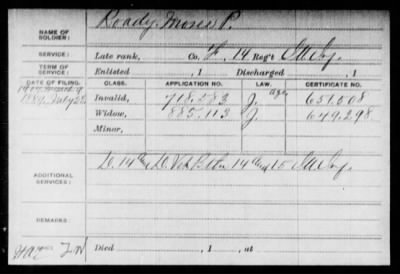 NAME OF SOLDIER: Roady, Moses P.
SERVICE: Late rank, Co. F, 14 Reg't Ill. Inf.
TERM OF SERVICE: Enlisted , 1 Discharged , 1
DATE OF FILING. CLASS. APPLICATION NO. LAW. CERTIFICATE NO.
1889, July 23 Invalid, 718.583 J. 631.508
Widow, 885.113 J. 649.298
Minor,
ADDITIONAL SERVICES: D. 14 & D. Vet. Bttn. 14 and 15 Ill. Inf.
REMARKS:
Died , 1 , at